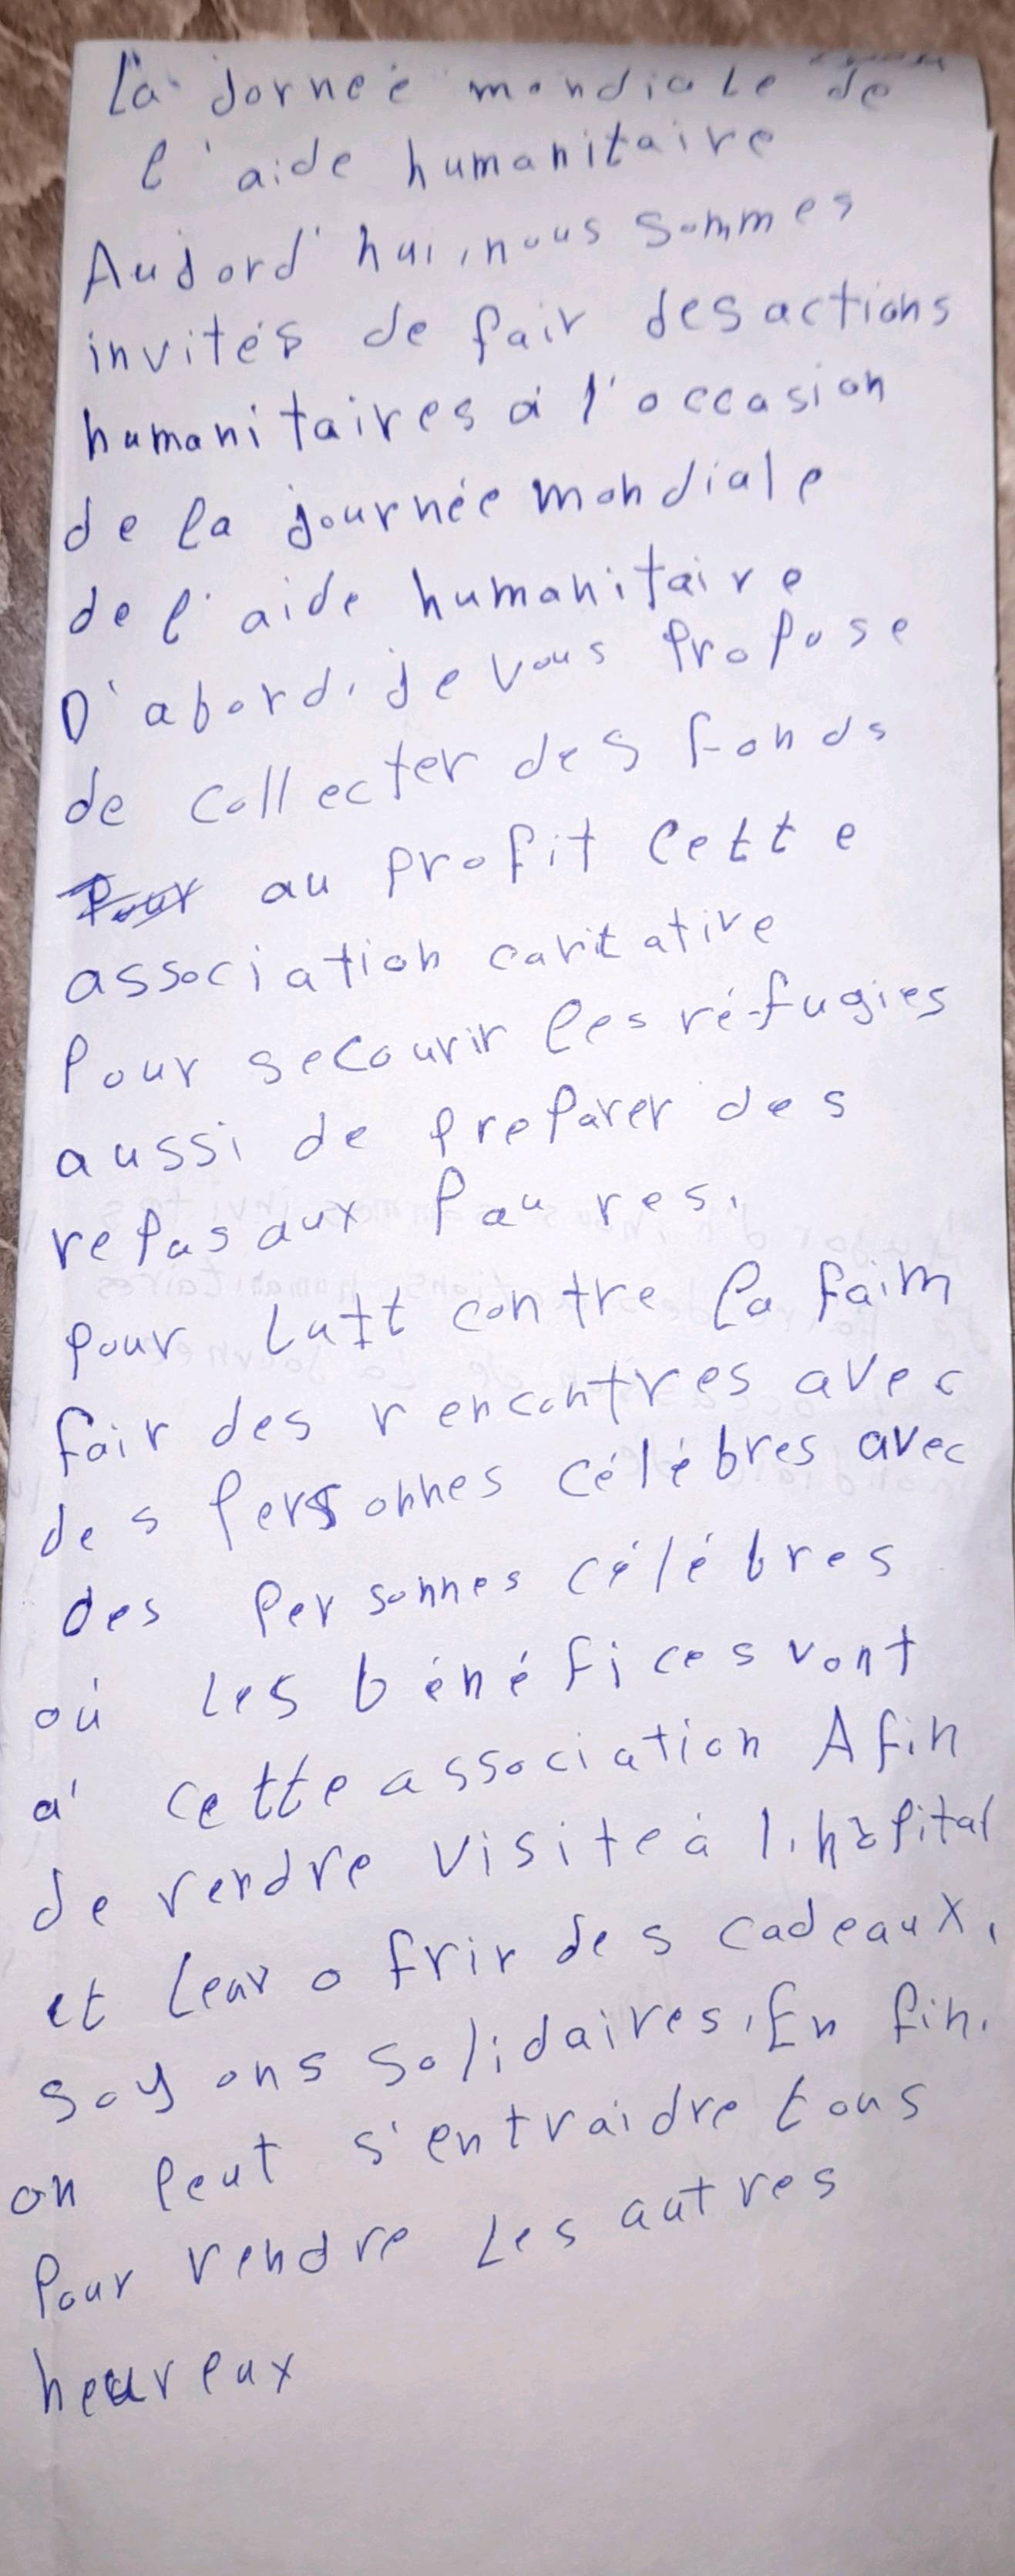 La jornée mondiale de
l'aide humanitaire
Aujord'hui, nous sommes
invités de fair des actions
humanitaires à l'occasion
de la journée mondiale
de l'aide humanitaire
D'abord, je vous propose
de collecter des fonds
au profit cette
association caritative
pour secourir les réfugies
aussi de preparer des
repas aux pauvres.
pour lutt contre la faim
fair des rencontres avec
des personnes célèbres avec
des personnes célébres
où les bénéfices vont
à cette association Afin
de rendre visite à l'hôpital
et leur offrir des cadeaux,
soyons solidaires, En fin,
on peut s'entraidre tous
pour rendre les autres
heureux